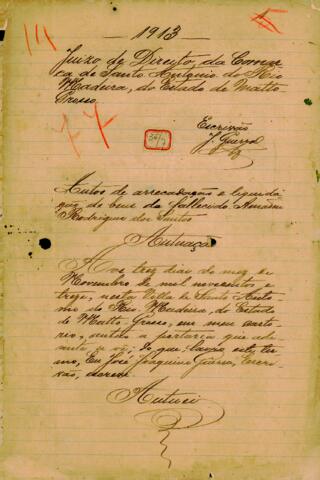 1913
Juizo de Direito, da Comar-
ca de Santo Antonio do Rio
Madeira, do Estado de Matto
Grosso.
Escrivão
J. Guerra
77
Autos de arrecadação e liquida
ção de bens do fallecido
Rodrigues dos Santos
Autuação
Aos tres dias do mez de
Novembro de mil novecentos e
treze, nesta Villa de Santo Anto-
nio do Rio Madeira, do Estado
de Matto Grosso, em meu carto-
rio, autuo a portaria que adi-
ante se vê; do que lavro este ter-
mo, Eu José Joaquim Guerra, Escri-
vão, escrevi.
Autuei